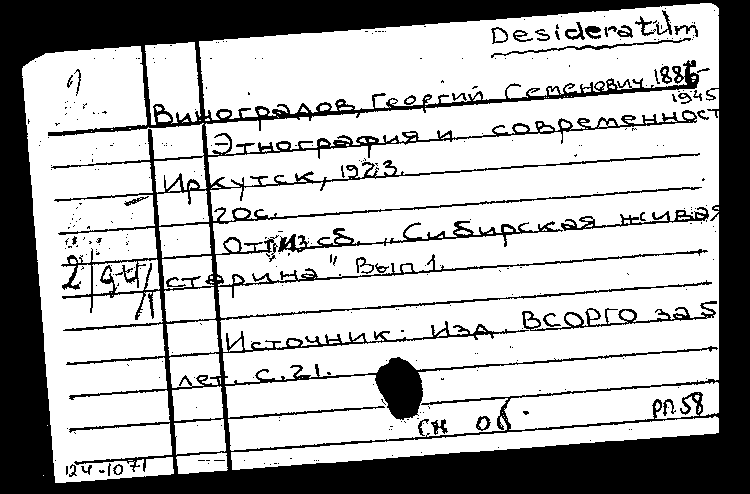 Desideratum
Виноградов, Георгий Семенович, 1886-
1945
Этнография и современност
Иркутск, 1923.
20с.
Отт. из сб. „Сибирская живая
старина". Вып 1.
Источник: Изд. ВСОРГО за 5
лет. С.21.
сн об.
РП.58
124-1071